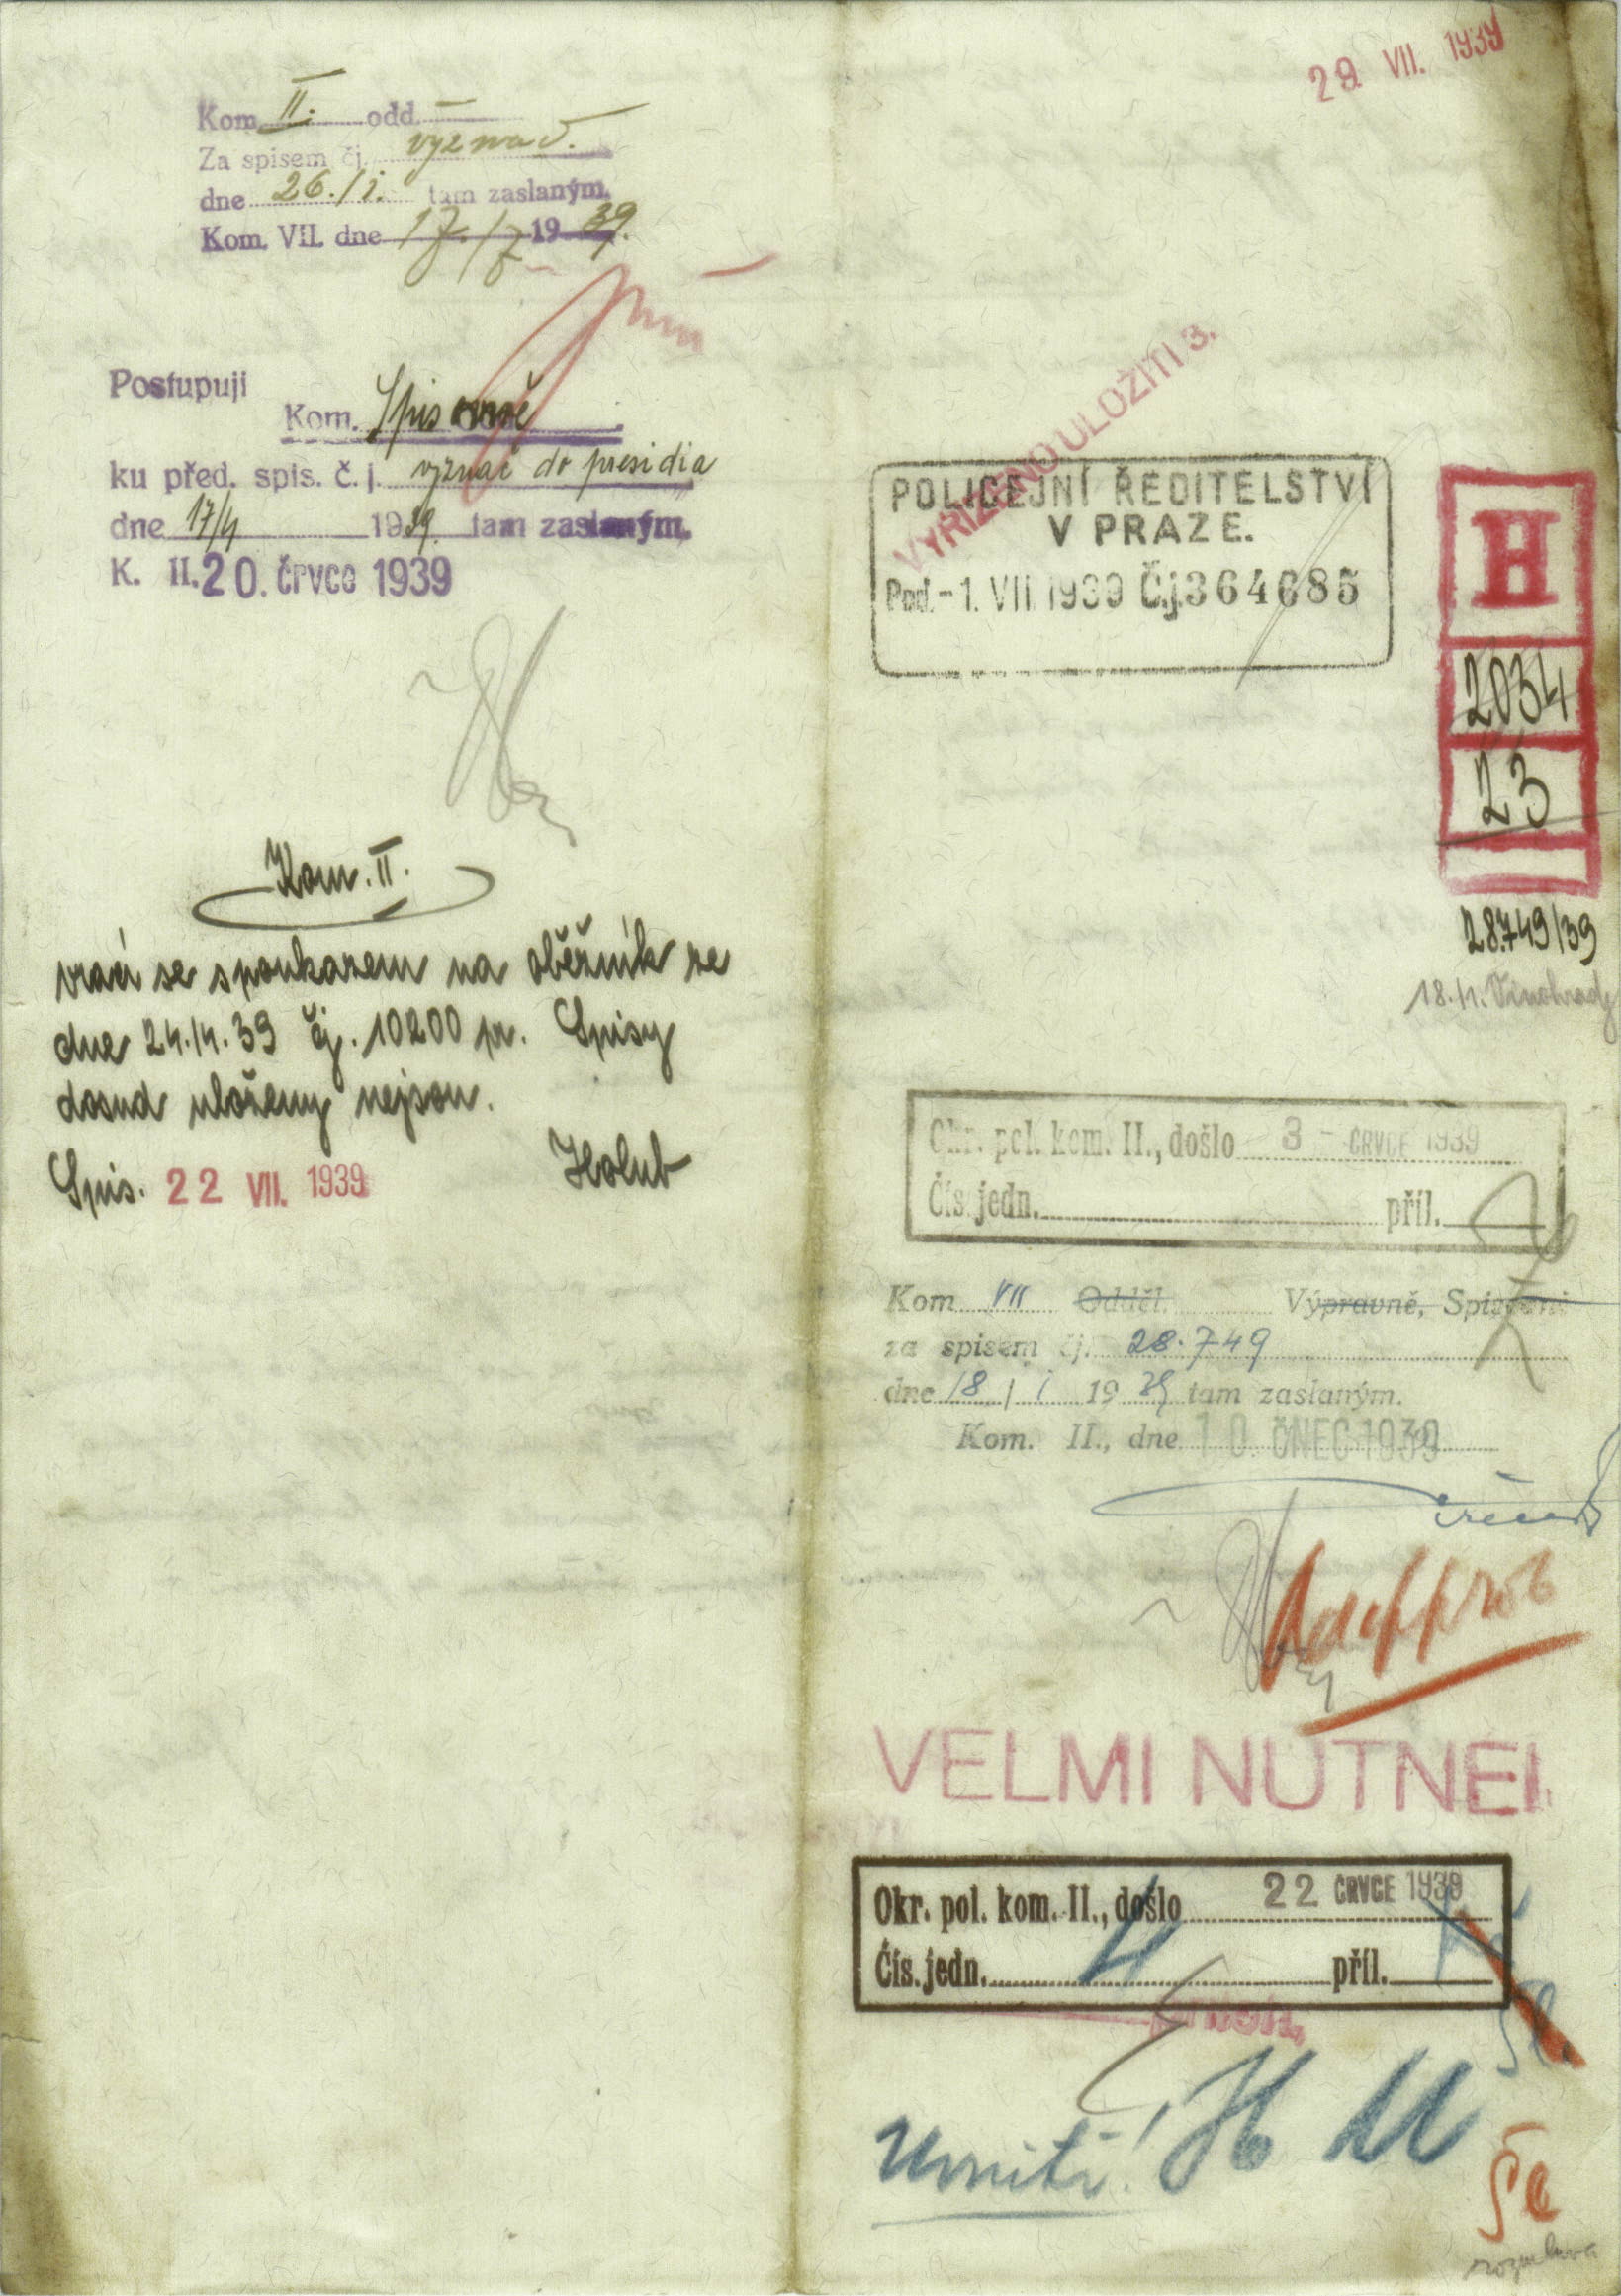 29 VII. 1939
Kom II. odd. –
Za spisem čj. vyznač.
dne 26./1. tam zaslaným.
Kom. VII. dne 17./7 1939.
Postupuji
Kom. Spisovně
ku před. spis. č. j. vyznač do presidia
dne 17/4 1939. tam zaslaným.
K. II. 20. črvce 1939
Kom. II.
vrací se s poukazem na oběžník ze
dne 24./4. 39 čj. 10200 pr. Spisy
dosud uloženy nejsou.
Spis. 22 VII. 1939 Holub
VYŘÍZENO ULOŽITI 3.
POLICEJNÍ ŘEDITELSTVÍ
V PRAZE.
Pod. -1. VII 1939 Č.j. 364685
H
2034
23
28.749/39
18./1. Vinohrady
Okr. pol. kom. II., došlo 3 - ČRVCE 1939
Čís. jedn. příl.
Kom VII Odděl. Výpravně, Spisovni
za spisem čj. 28.749
dne 18 / I 1939 tam zaslaným.
Kom. II., dne 10. ČNEC 1939
VELMI NUTNÉ!
Okr. pol. kom. II., došlo 22 ČRVCE 1939
Čís. jedn. 4 příl.
H
Še